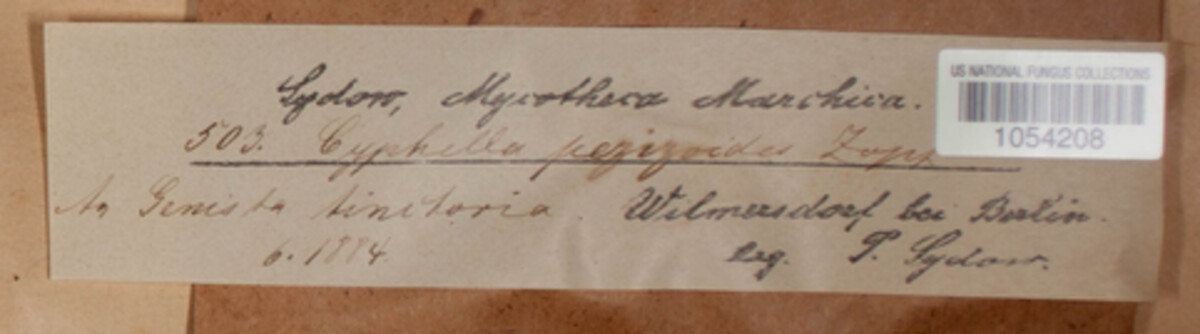 Sydow, Mycotheca Marchica.
503. Cyphella pezizoides Zopf
An Genista tinctoria. Wilmersdorf bei Berlin.
6. 1884. leg. P. Sydow.
US NATIONAL FUNGUS COLLECTIONS
1054208